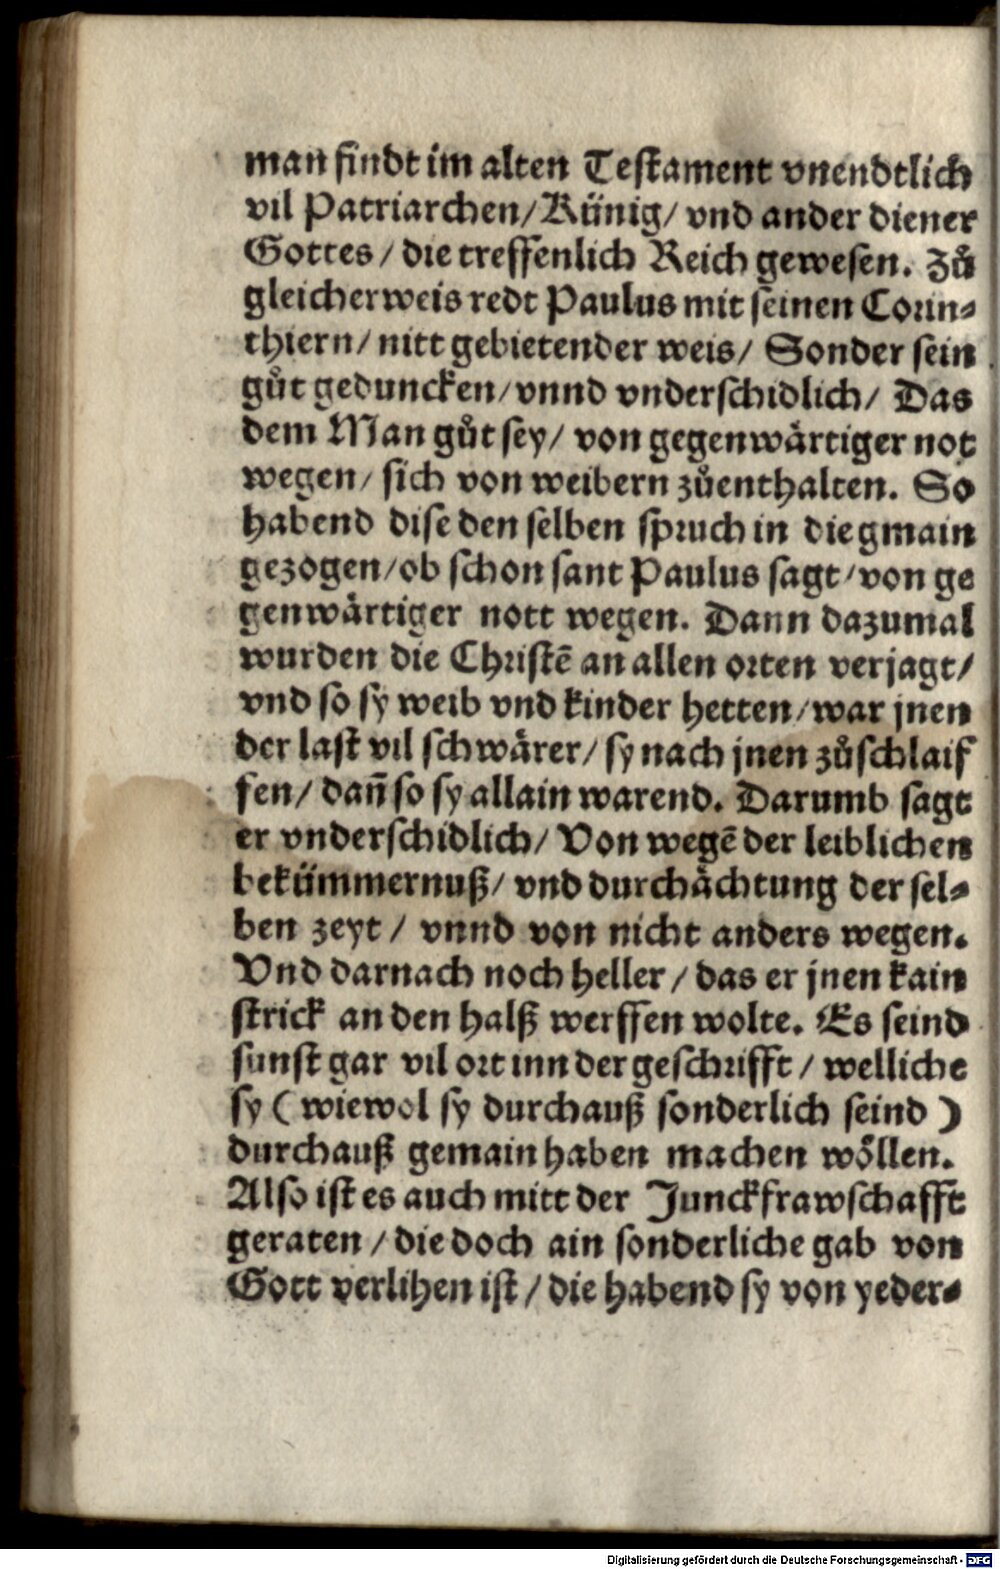 man findt im alten Testament vnendtlich
vil Patriarchen / Künig / vnd ander diener
Gottes / die treffenlich Reich gewesen. Zů
gleicher weis redt Paulus mit seinen Corin⸗
thiern / nitt gebietender weis / Sonder sein
gůt geduncken / vnnd vnderschidlich / Das
dem Man gůt sey / von gegenwårtiger not
wegen / sich von weibern zůenthalten. So
habend dise den selben spruch in die gmain
gezogen / ob schon sant Paulus sagt / von ge
genwårtiger nott wegen. Dann dazumal
wurden die Christē an allen orten verjagt /
vnd so sy weib vnd kinder hetten / war jnen
der last vil schwårer / sy nach jnen zůschlaif
fen / dañ so sy allain warend. Darumb sagt
er vnderschidlich / Von wegē der leiblichen
bekümmernuß / vnd durchåchtung der sel⸗
ben zeyt / vnnd von nicht anders wegen.
Vnd darnach noch heller / das er jnen kain
strick an den halß werffen wolte. Es seind
sunst gar vil ort inn der geschrifft / welliche
sy ( wiewol sy durchauß sonderlich seind )
durchauß gemain haben machen wöllen.
Also ist es auch mitt der Junckfrawschafft
geraten / die doch ain sonderliche gab von
Gott verlihen ist / die habend sy von yeder⸗
Digitalisierung gefördert durch die Deutsche Forschungsgemeinschaft - DFG